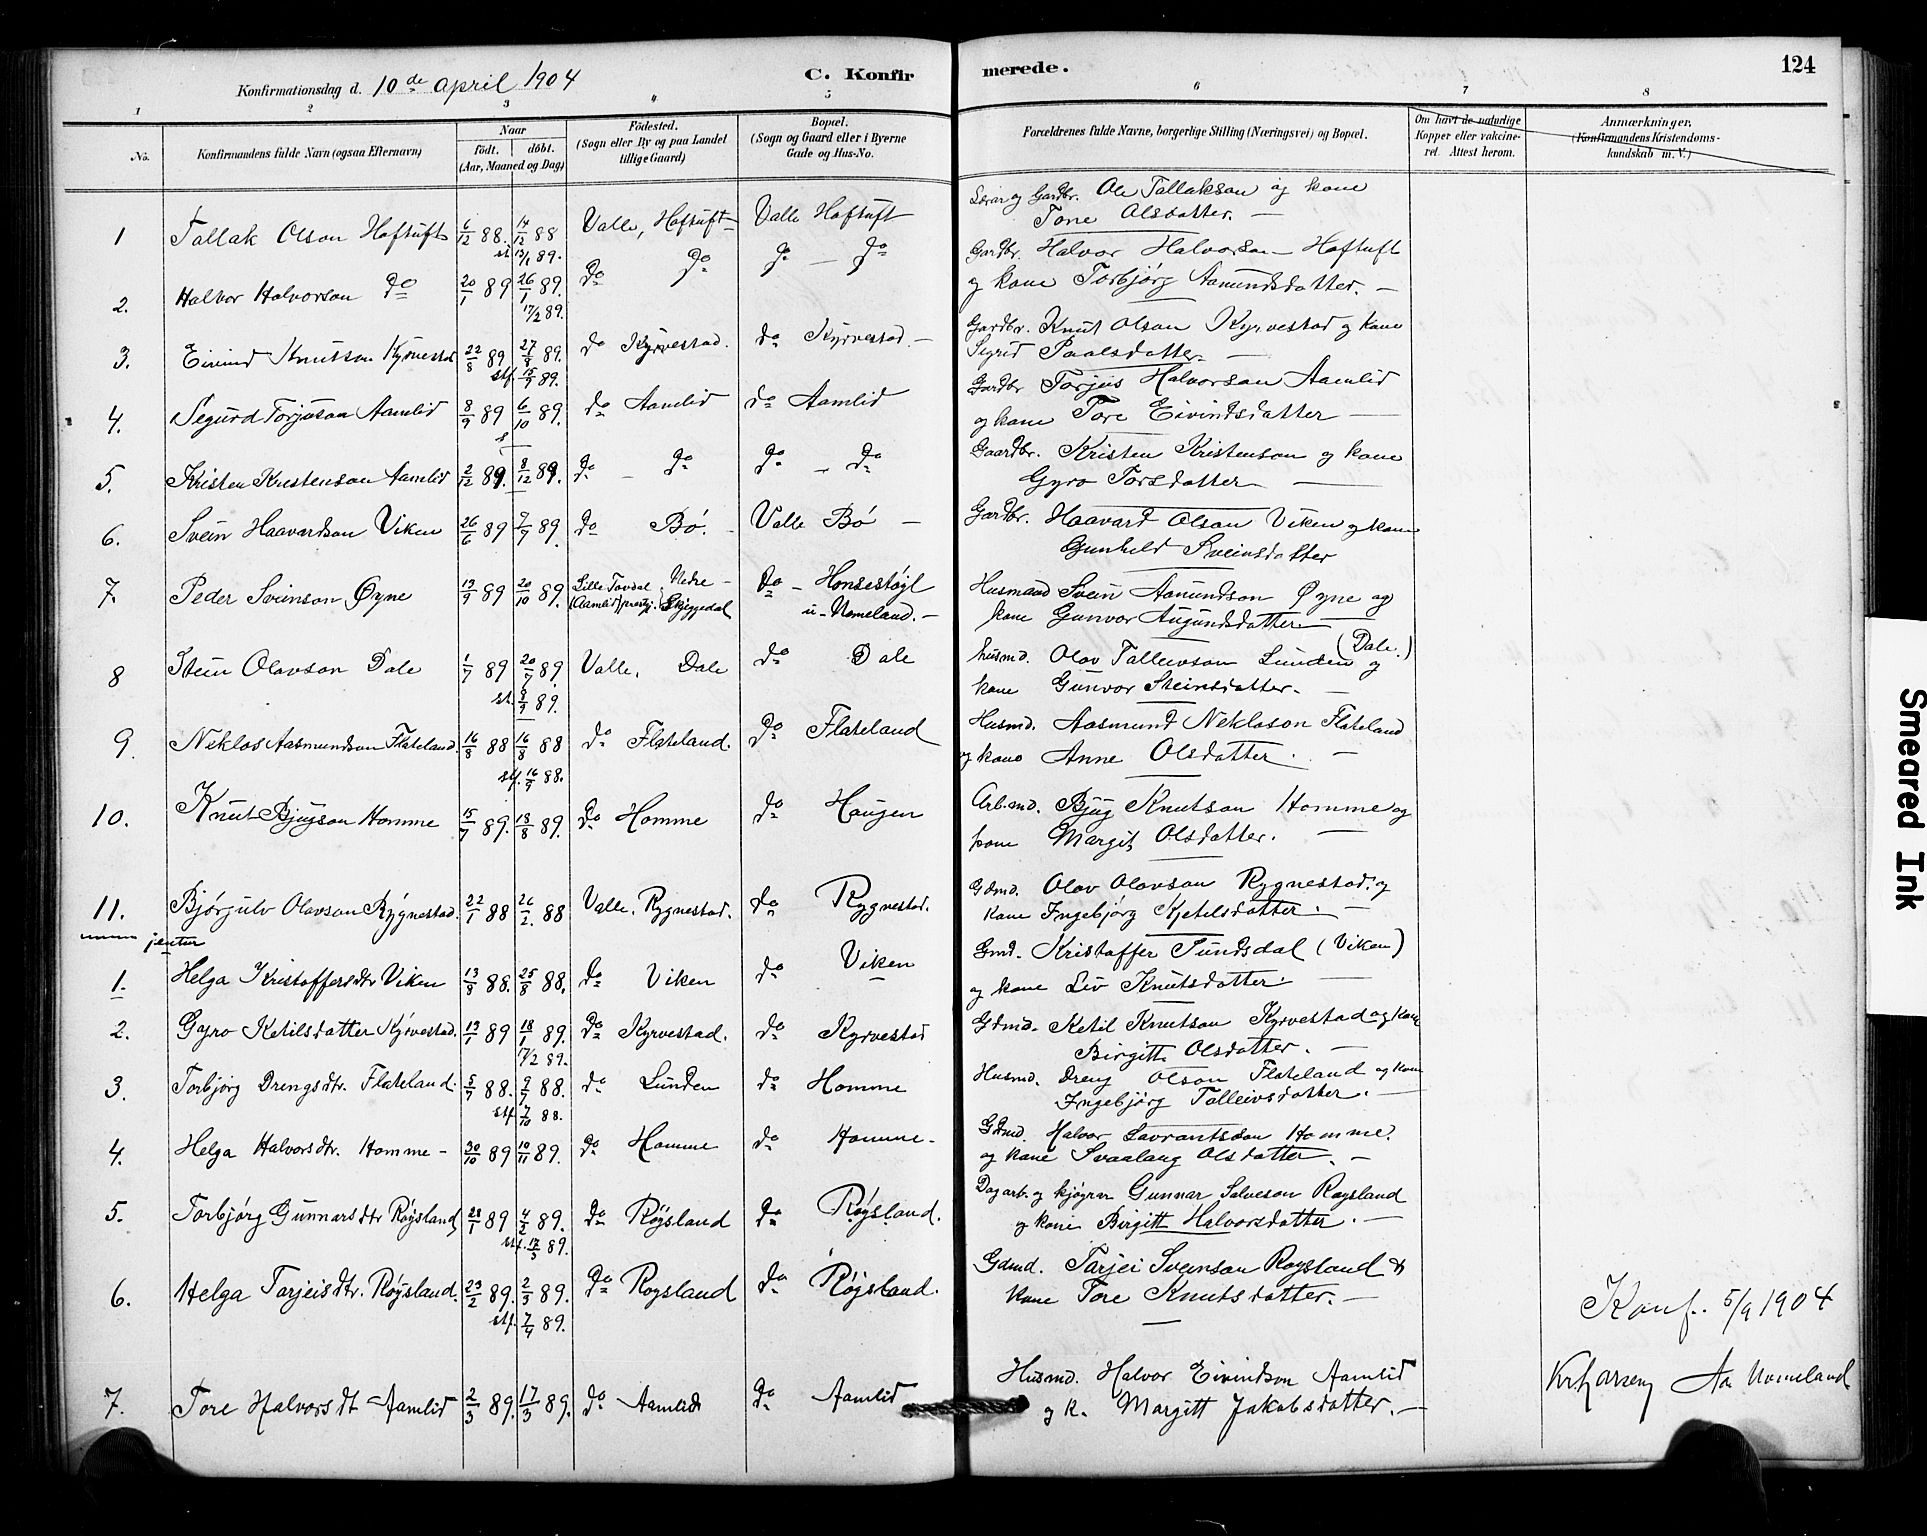 Konfirmationsdag d. 10de april 1904
C. Konfirmerede.
124
1 2 3 4 5 6 7 8
No.
Konfirmandens fulde Navn (ogsaa Efternavn)
Naar
födt. döbt.
(Aar, Maaned og Dag)
Födested.
(Sogn eller By og paa Landet
tillige Gaard)
Bopæl.
(Sogn og Gaard eller i Byerne
Gade og Hus-No.
Forældrenes fulde Navne, borgerlige Stilling (Næringsvei) og Bopæl.
Om havt de naturlige
Kopper eller vakcine-
ret. Attest herom.
Anmærkninger.
(Konfirmandens Kristendoms-
kundskab m. V.)
1 Tallak Olson Hoftuft 6/12 88. 14/12 88 st. 13/1 89. Valle, Hoftuft Valle Hoftuft
Lærar og Gardbr. Ole Tallakson og kone
Tone Olsdatter. —
2. Halvor Halvorson do 20/1 89 26/1 89. 17/2 89. do do do — do
Gardbr. Halvor Halvorson Hoftuft
og kone Torbjørg Aamundsdatter. —
3. Eivind Knutson Kyrvestad 22/8 89 27/8 89. stf. 15/9 89. do Kyrvestad. do Kyrvestad —
Gardbr. Knut Olson Kyrvestad og kone
Sigrid Paalsdatter —
4. Segurd Torjuson Aamlid 8/9 89 6/10 89. do Aamlid do Aamlid
Gardbr Torjus Halvorson Aamlid
og kone Tore Eivindsdatter —
5. Kristen Kristenson Aamlid 2/12 89. 8/12 89. do — do do — do
Gaardbr. Kristen Kristenson og kone
Gyro Torsdatter —
6. Svein Haavardson Viken 26/6 89 7/7 89. do Bø. — Valle Bø —
Gardbr. Haavard Olson Viken og kone
Gunhild Sveinsdatter
7. Peder Sveinson Øyne 13/9 89 20/10 89. Lille Tovdal (Aamlid) prestgj. Nedre — Skjeggedal do — Honsestøyl
u. Nomeland. —
Husmand Svein Aamundson Øyne og
kone Gunvor Augundsdatter —
8 Stein Olavson Dale 1/7 89 20/7 89. st. 8/9 89. Valle, Dale do Dale
husmd. Olav Talleivson Lunden (Dale.) og
kone Gunvor Steinsdatter. —
9. Neklos Aasmundson Flateland. 16/8 88 16/8 88 stf. 16/9 88. do Flateland. do Flateland
Husmd. Aasmund Neklason Flateland
og kone Anne Olsdatter. —
10. Knut Bjugson Homme 15/7 89. 18/8 89. do Homme do Haugen
Arb.md. Bjug Knutson Homme og
kone Margit Olsdatter. —
11. Bjørgulv Olavson Rygnestad. 22/1 88 26/2 88 Valle, Rygnestad. do Rygnestad.
Gdmd. Olav Olavson Rygnestad og
kone Ingebjørg Kjetelsdatter. —
jentur
1. Helga Kristoffersdtr Viken 13/8 88. 25/8 88. do Viken do Viken
Gmd. Kristoffer Sundsdal (Viken)
og kone Liv Knutsdatter. —
2. Gyro Ketilsdatter Kyrvestad. 13/1 89 18/1 89. 17/2 89. do Kyrvestad. do Kyrvestad
Gdmd. Ketil Knutson Kyrvestad og kone
Birgitte Olsdatter. —
3. Torbjørg Drengsdtr. Flateland. 5/7 88. 9/7 88. stf. 7/10 88. do Lunden do Homme
Husmd. Dreng Olson Flateland og kone
Ingebjørg Talleivsdatter. —
4. Helga Halvorsdtr. Homme — 30/10 89 10/11 89. do Homme do Homme —
Gdmd. Halvor Lavrantsson Homme.
og kone Svaalaug Olsdatter. —
5. Torbjørg Gunnarsdtr Røysland 28/1 89 4/2 89. stf. 17/3 89. do Røysland do Røysland.
Dagarb. og Gunnar Salveson Røysland
og kone Birgitt Halvorsdatter. —
6. Helga Torjeisdtr. Røysland. 23/2 89. 2/3 89. stf. 7/4 89. do Roysland do Røysland.
Gdmd. Tarjei Sveinson Roysland &
kone Tore Knutsdatter. —
Konf. 5/9 1904
7. Tore Halvorsdt Aamlid 2/3 89. 17/3 89. do Aamlid do Aamlid
Husmd. Halvor Eivindson Aamlid
og k. Margitt Jakobsdatter. —
Aa Nomeland
Smeared Ink